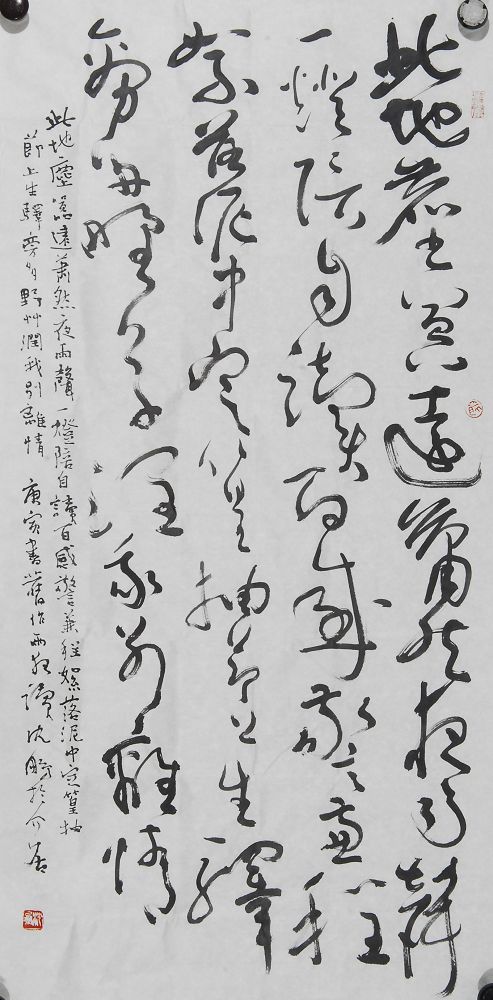 此地塵囂遠蕭然夜雨聲
一燈陪自讀百感警兼程
絮落泥中定篁抽節上生驛
旁多野草潤我別離情
此地塵囂遠蕭然夜雨聲一燈陪自讀百感警兼程絮落泥中定篁抽
節上生驛旁多野艸潤我別離情 庚寅書舊作雨夜讀 沈鵬於介居